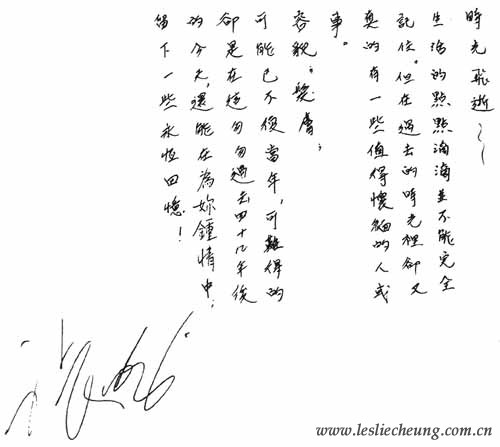 時光飛逝~~
生活的點點滴滴並不能完全
記住。但在過去的時光裡卻又
真的有一些值得懷緬的人或
事。
容貌、髮膚,
可能已不復當年,可難得的
卻是在這匆匆過去四十几年後
的今天,還能在為妳鍾情中,
留下一些永恆回憶!
www.lesliecheung.com.cn